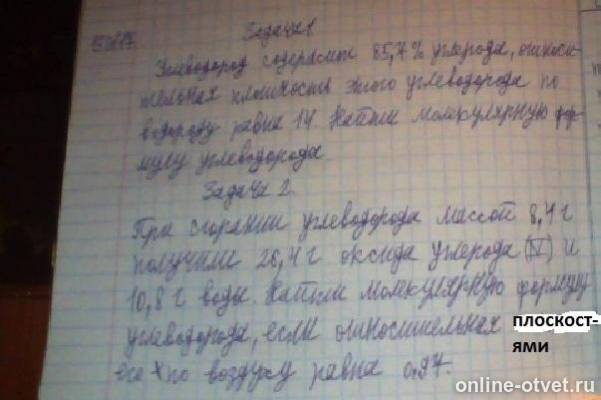 Задача 1
Углеводород содержит 85,7% углерода, относи-
тельная плотность этого углеводорода по
водороду равна 14. Найти молекулярную фор-
мулу углеводорода.
Задача 2.
При сгорании углеводорода массой 8,4 г
получили 26,4 г оксида углерода (IV) и
10,8 г воды. Найти молекулярную формулу
углеводорода, если относительная плоскост-
ями
его по воздуху равна 0,97.
online-otvet.ru